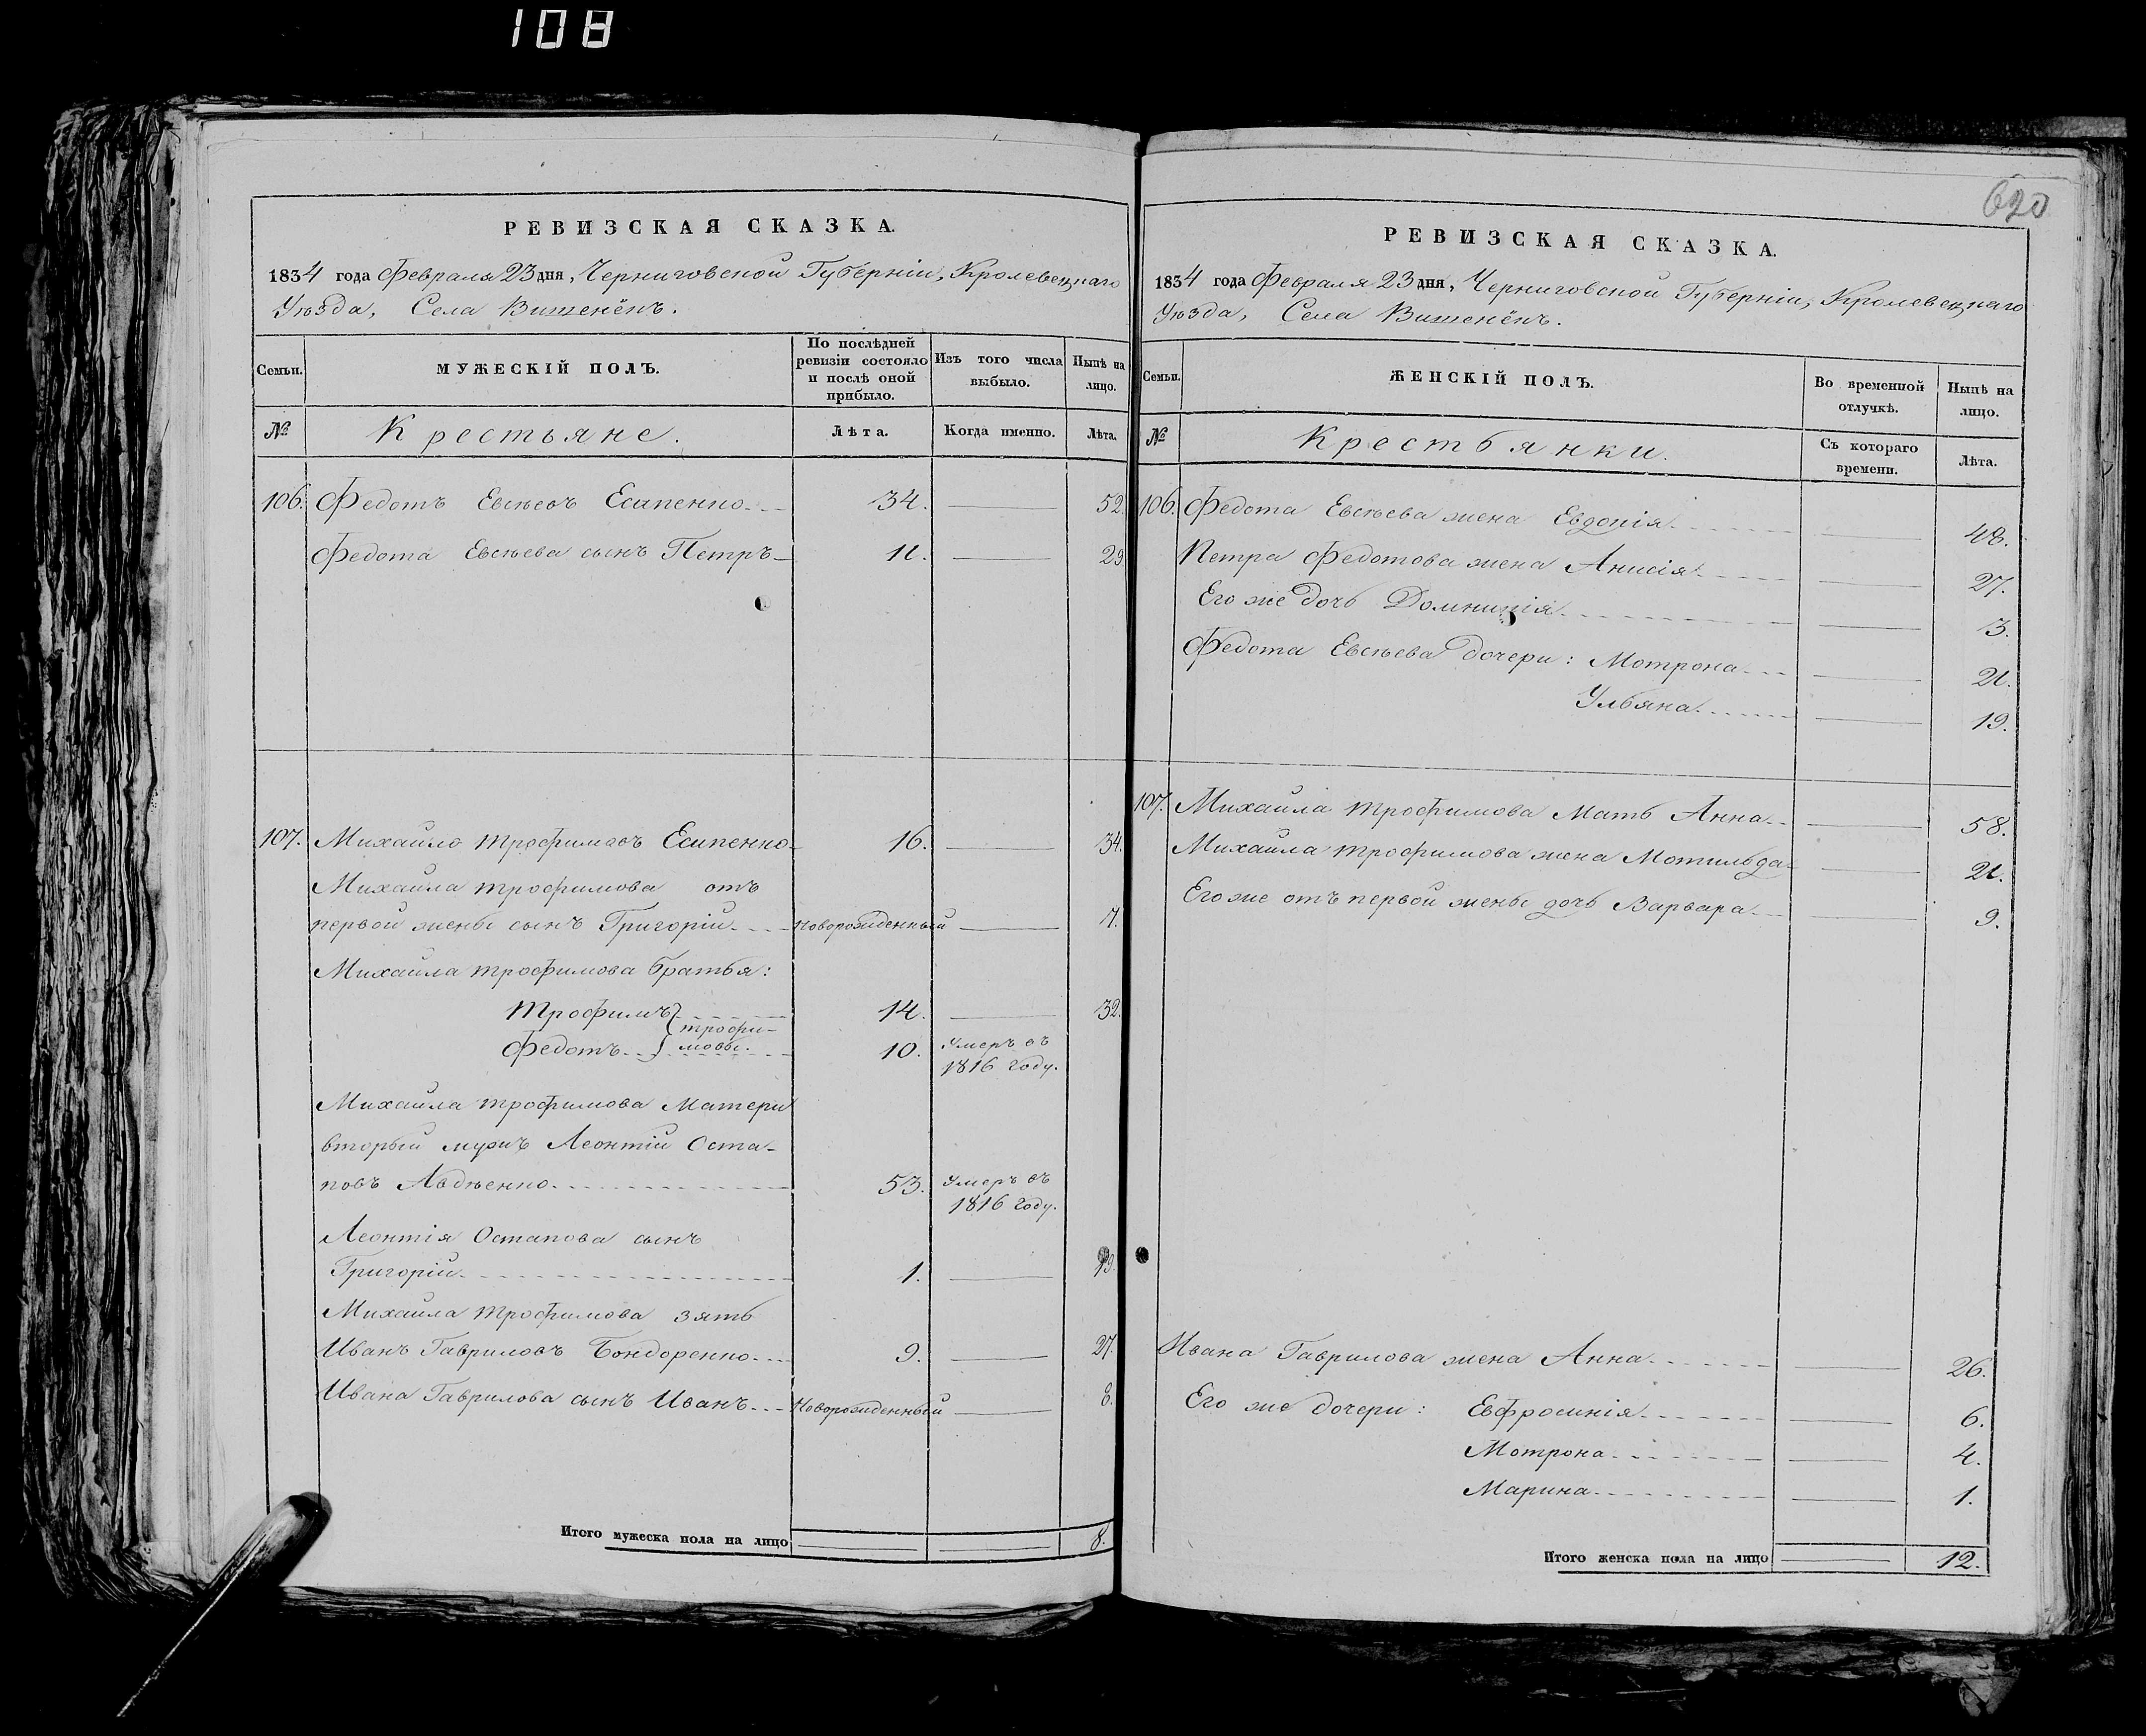 108
РЕВИЗСКАЯ СКАЗКА.
1834 года Февраля 23 дня, Черниговской Губерніи, Кролевецкаго
Уѣзда, Села Вишенёкъ.
Семьи. МУЖЕСКІЙ ПОЛЪ. По послѣдней ревизіи состояло и послѣ оной прибыло. Изъ того числа выбыло. Нынѣ на лицо.
№ Крестьяне. Лѣта. Когда именно. Лѣта.
106. Федотъ Евсѣевъ Есипенко 34. 52.
Федота Евсѣева сынъ Петръ 11. 29.
107. Михайло Трофимовъ Есипенко 16. 34.
Михайла Трофимова отъ
первой жены сынъ Григорій новорожденный 7.
Михайла Трофимова братья:
Трофимъ } Трофи- 14. 32.
Федотъ } мовы. 10. Умеръ въ
1816 году.
Михайла Трофимова Матери
вторый мужъ Леонтій Оста-
повъ Авдѣенко 53. Умеръ въ
1816 году.
Леонтія Остапова сынъ
Григорій 1. 19.
Михайла Трофимова зять
Иванъ Гавриловъ Бондоренко 9. 27.
Ивана Гаврилова сынъ Иванъ Новорожденный 8.
Итого мужеска пола на лицо 8.
620
РЕВИЗСКАЯ СКАЗКА.
1834 года Февраля 23 дня, Черниговской Губерніи, Кролевецкаго
Уѣзда, Села Вишенёкъ.
Семьи. ЖЕНСКІЙ ПОЛЪ. Во временной отлучкѣ. Нынѣ на лицо.
№ Крестьянки. Съ котораго времени. Лѣта.
106. Федота Евсѣева жена Евдокія 48.
Петра Федотова жена Анисія 27.
Его же дочь Домникія 3.
Федота Евсѣева дочери: Мотрона 21.
Ульяна 19.
107. Михайла Трофимова Мать Анна 58.
Михайла Трофимова жена Мотильда 21.
Его же отъ первой жены дочь Варвара 9.
Ивана Гаврилова жена Анна 26.
Его же дочери: Евфросинія 6.
Мотрона 4.
Марина 1.
Итого женска пола на лицо 12.